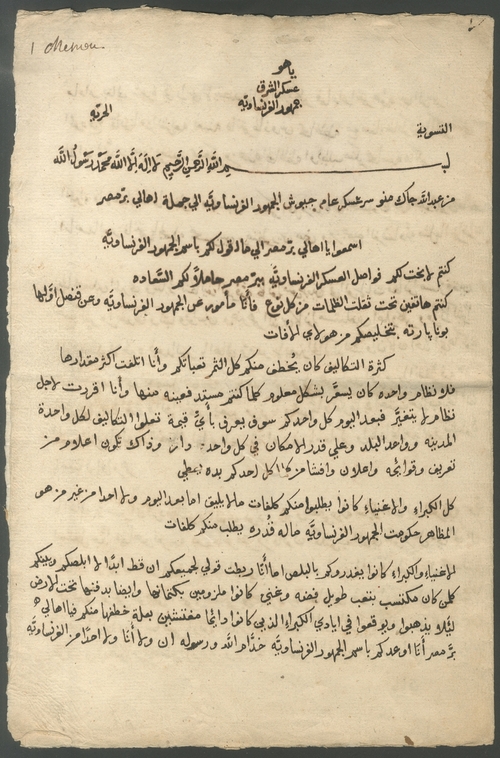 1 Memou
يا هو
عسكر الشرق
جمهور الفرنساويّه
الحريّه
التسوية
بسم الله الرّحمن الرّحيم لا اله الّا الله محمّد رسول الله
من عبد الله جاك منو سر عسكر عام جيوش الجمهور الفرنساويّه الي جملة اهالي برّ مصر
اسمعوا يا اهالي برّ مصر الي ما نقول لكم باسم الجمهور الفرنساويّه
كنتم لا بخت لكم فواصل العسكر الفرنساويّه ببرّ مصر حاملاً لكم السّعاده
كنتم هافتين تحت ثقلت الظلمات من كل نوع فانّا مأمور عن الجمهور الفرنساويّه وعن قنصل اوّلها
بونا پارته بتخليصكم من هولاي الآفات
كثرة التكاليف كان يُخطف منكم كل اثر تعباتكم وأنا اتلفت اكثر مقدارها
فلا نظام واحده كان يسعّر بشكل معلوم كلما كنتم مستدفعينه منها وأنا اقررت لاجل
نظام لا يتغيّر فبعد اليوم كل واحدكم سوف يعرف بأيّ قيمة تعلوا التكاليف لكل واحدة
المدينه وواحد البلد وعلي قدر الامكان في كل واحد دار وذاك تكون اعلام من
تعريف وقوائمه واعلان وافشا من كل احدكم بده يعطي
كل الكبراء والاغنياء كانوا يطلبوا منكم كلفات ما لا يليق اما بعد اليوم ولا احدا من غير من هو
المظاهر حكومت الجمهور الفرنساويّه ماله قُدره يطلب منكم كلفات
الاغنياء والكبراء كانوا يغدروكم بالبلص اما أنّا ربطت قولي لجميعكم ان قط ابدًا لا ابلصكم وبينكم
كلمن كان مكتسب بتعب طويل فضه وغنى كانوا ملزومين بكتمانها وايضا بدفنها تحت الارض
لئلا يذهبوا ويوقعوا في ايادي الكبراء الذين كانوا دايمًا مفتشين بعلة خطفها منكم فيا اهالي
برّ مصر أنا اوعدكم باسم الجمهور الفرنساويّه خدّام الله ورسوله ان ولا أنا ولا احدًا من الفرنساويّه